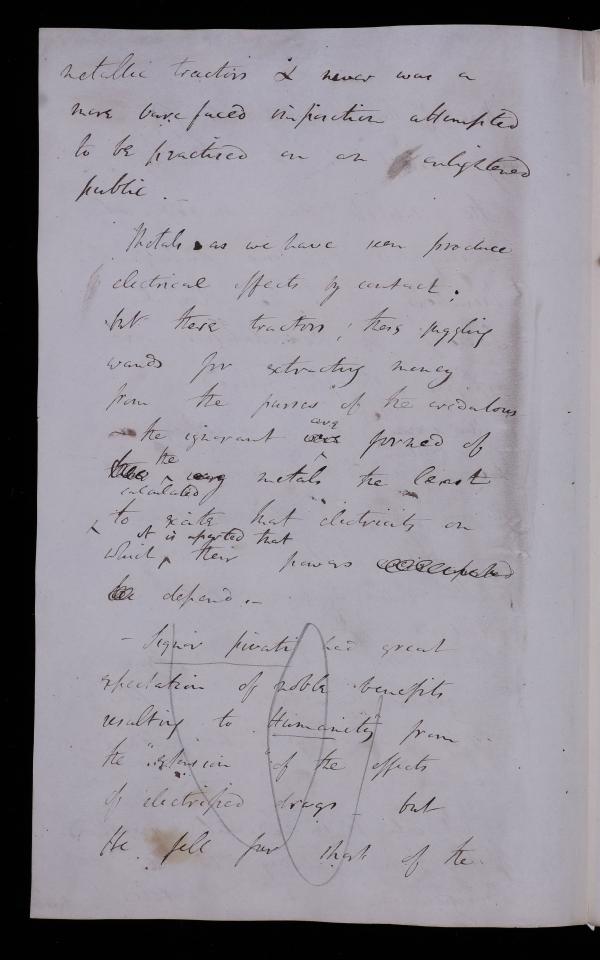 metallic tractors & never was a
more barefaced imposition attempted
to be practised on an enlightened
public. –
Metals as we have seen produce
electrical effects by contact;
but these tractors, these juggling
wands for extracting money
from the purses of the credulous
& the ignorant are formed of
the very metals the least
calculated
to excite that electricity on
it is asserted that
which, their powers
depend. –
– Signor pivati had great
expectation of noble benefits
resulting to "Humanity" from
the "extension" of the effects
of electrified drugs – but
He fell far short of the